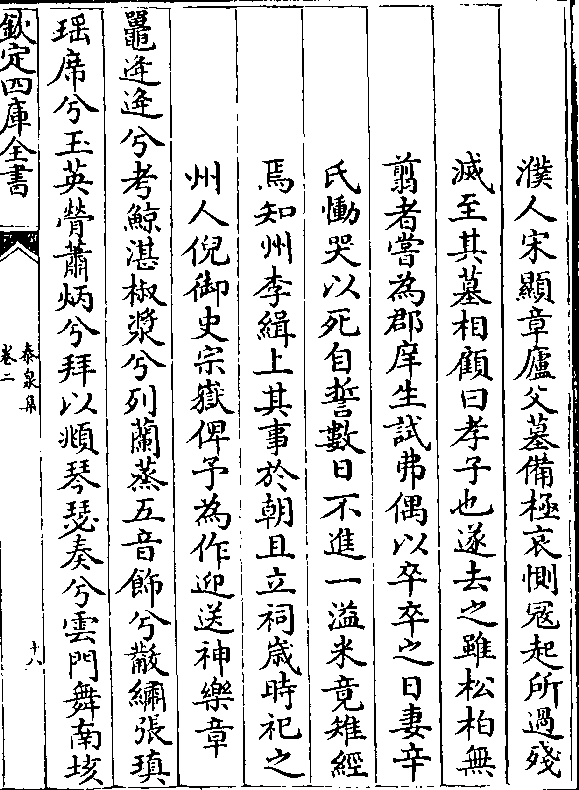 濮人宋顯章廬父墓備極哀惻冦起所過殘
滅至其墓相顧曰孝子也遂去之雖松柏無
翦者嘗為郡庠生試弗偶以卒卒之日妻辛
氏慟哭以死自誓數日不進一溢米竟雉經
焉知州李緝上其事於朝且立祠歳時祀之
州人倪御史宗嶽俾予為作迎送神樂章
鼉逄逄兮考鯨湛椒漿兮列蘭蒸五音飾兮散繡張瑱
瑶席兮玉英膋蕭炳兮拜以頫琴瑟奏兮雲門舞南垓
欽定四庫全書
泰泉集
卷二
十八